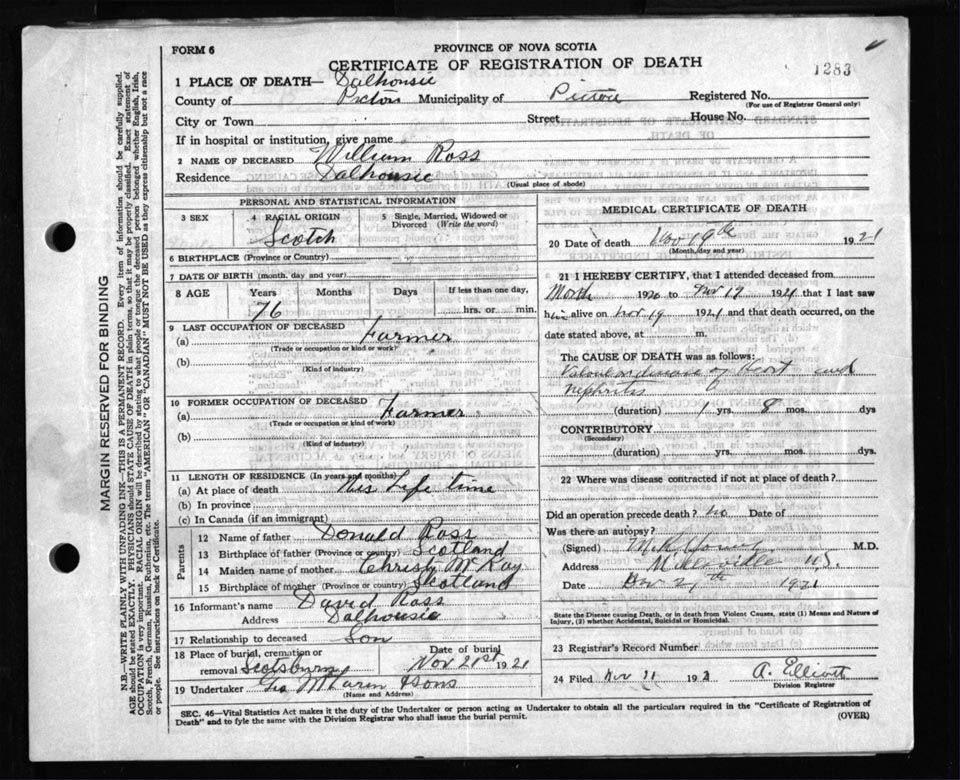 FORM 6
PROVINCE OF NOVA SCOTIA
CERTIFICATE OF REGISTRATION OF DEATH
1283
1 PLACE OF DEATH— Dalhousie
County of Pictou Municipality of Pictou Registered No.
(For use of Registrar General only)
City or Town Street House No.
If in hospital or institution, give name
2 NAME OF DECEASED William Ross
Residence Dalhousie
(Usual place of abode)
PERSONAL AND STATISTICAL INFORMATION
3 SEX 4 RACIAL ORIGIN 5 Single, Married, Widowed or Divorced (Write the word)
Scotch
6 BIRTHPLACE (Province or Country)
7 DATE OF BIRTH (month, day and year)
8 AGE Years Months Days If less than one day,
76 hrs. or min.
9 LAST OCCUPATION OF DECEASED
(a) Farmer
(Trade or occupation or kind of work)
(b)
(Kind of industry)
10 FORMER OCCUPATION OF DECEASED
(a) Farmer
(Trade or occupation or kind of work)
(b)
(Kind of industry)
11 LENGTH OF RESIDENCE (In years and months)
(a) At place of death His Life time
(b) In province
(c) In Canada (if an immigrant)
Parents
12 Name of father Donald Ross
13 Birthplace of father (Province or country) Scotland
14 Maiden name of mother Christy McKay
15 Birthplace of mother (Province or country) Scotland
16 Informant's name David Ross
Address Dalhousie
17 Relationship to deceased Son
18 Place of burial, cremation or removal Scotsburn Date of burial Nov 21st 1921
19 Undertaker Geo McLaren & Sons
(Name and Address)
MEDICAL CERTIFICATE OF DEATH
20 Date of death Nov 19th 1921
(Month, day and year)
21 I HEREBY CERTIFY, that I attended deceased from
March 1920 to Nov 19 1921 that I last saw
him alive on Nov 19 1921 and that death occurred, on the
date stated above, at
The CAUSE OF DEATH was as follows:
Valvular disease of Heart and
nephritis
(duration) 1 yrs. 8 mos. dys
CONTRIBUTORY
(Secondary)
(duration) yrs. mos. dys.
22 Where was disease contracted if not at place of death?
Did an operation precede death? no Date of
Was there an autopsy?
(Signed) M.D.
Address Millsville N.S.
Date Nov 21th 1921
State the Disease causing Death, or in death from Violent Causes, state (1) Means and Nature of
Injury, (2) whether Accidental, Suicidal or Homicidal.
23 Registrar's Record Number
24 Filed Nov 21 1921 A. Elliott
Division Registrar
SEC. 46—Vital Statistics Act makes it the duty of the Undertaker or person acting as Undertaker to obtain all the particulars required in the "Certificate of Registration of
Death" and to fyle the same with the Division Registrar who shall issue the burial permit.
(OVER)
MARGIN RESERVED FOR BINDING
N.B.—WRITE PLAINLY WITH UNFADING INK—THIS IS A PERMANENT RECORD. Every item of information should be carefully supplied.
AGE should be stated EXACTLY. PHYSICIANS should STATE CAUSE OF DEATH in plain terms, so that it may be properly classified. Exact statement of
OCCUPATION is very important. RACIAL ORIGIN will be described by stating to what people or tongue the deceased person belonged whether English, Irish,
Scotch, French, German, Russian, Ruthenian, etc. The terms "AMERICAN" OR "CANADIAN" MUST NOT BE USED as they express citizenship but not a race
or people. See instructions on back of Certificate.